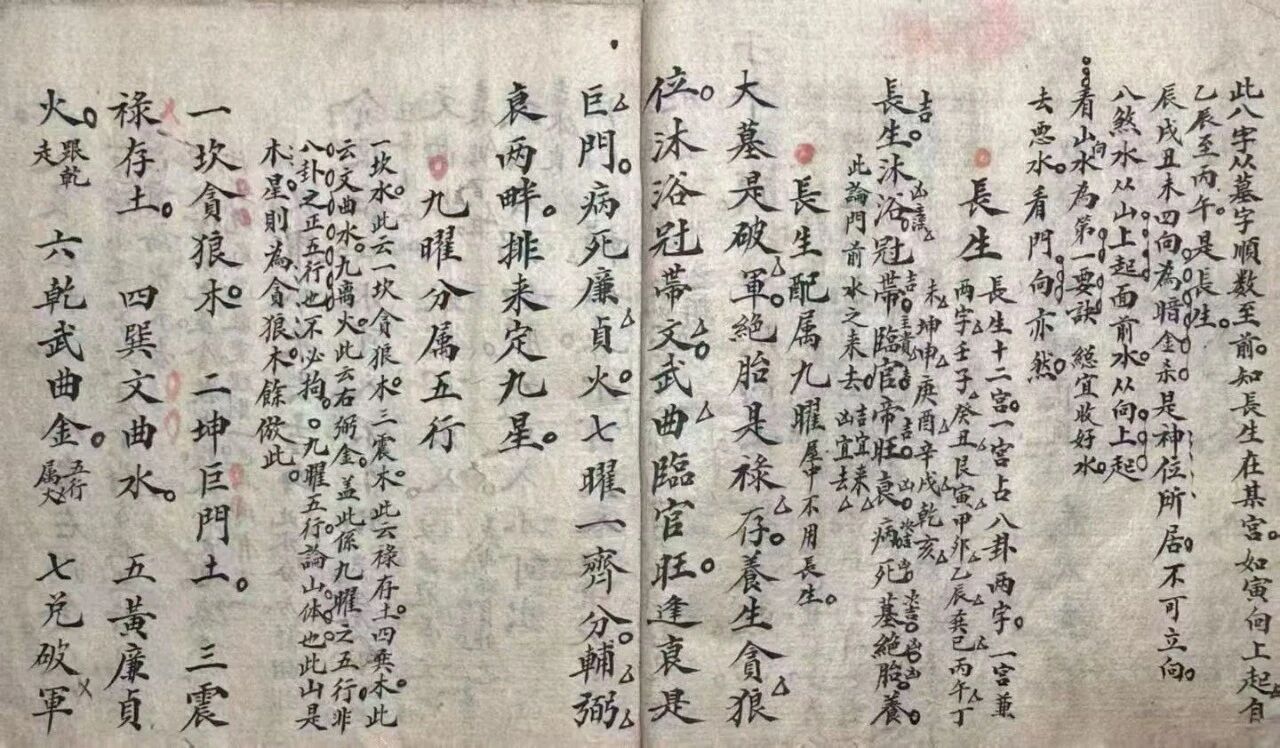 此八字从墓字順数至前知長生在某宫如寅向上起自
乙辰至丙午是長生
辰戌丑未四向為暗金杀是神位所居不可立向
八煞水从山上起面前水从向上起
看山向水為第一要訣 総宜收好水
去惡水看門向亦然
長生
長生十二宫一宫占八卦两字一宫兼
两字壬子癸丑艮寅甲卯乙辰巽巳丙午丁
未坤申庚酉辛戌乾亥
長生吉沐浴凶冠帶吉臨官帝旺吉衰凶病死墓絶胎養
此論門前水之来去吉宜来凶宜去
長生配属九曜屋中不用長生
大墓是破軍絶胎是禄存養生貪狼
位沐浴冠帶文武曲臨官旺逢衰是
巨門病死廉貞火七曜一齊分輔弼
衰两畔排来定九星
九曜分属五行
一坎水此云一坎貪狼木三震木此云禄存土四巽木此
云文曲水九离火此云右弼金盖此係九曜之五行非
八卦之正五行也不必拘九曜五行論山体也此山是
木星則為貪狼木餘倣此
一坎貪狼木 二坤巨門土 三震
禄存土 四巽文曲水 五黃廉貞
火跟乾走 六乾武曲金五行属火 七兌破軍